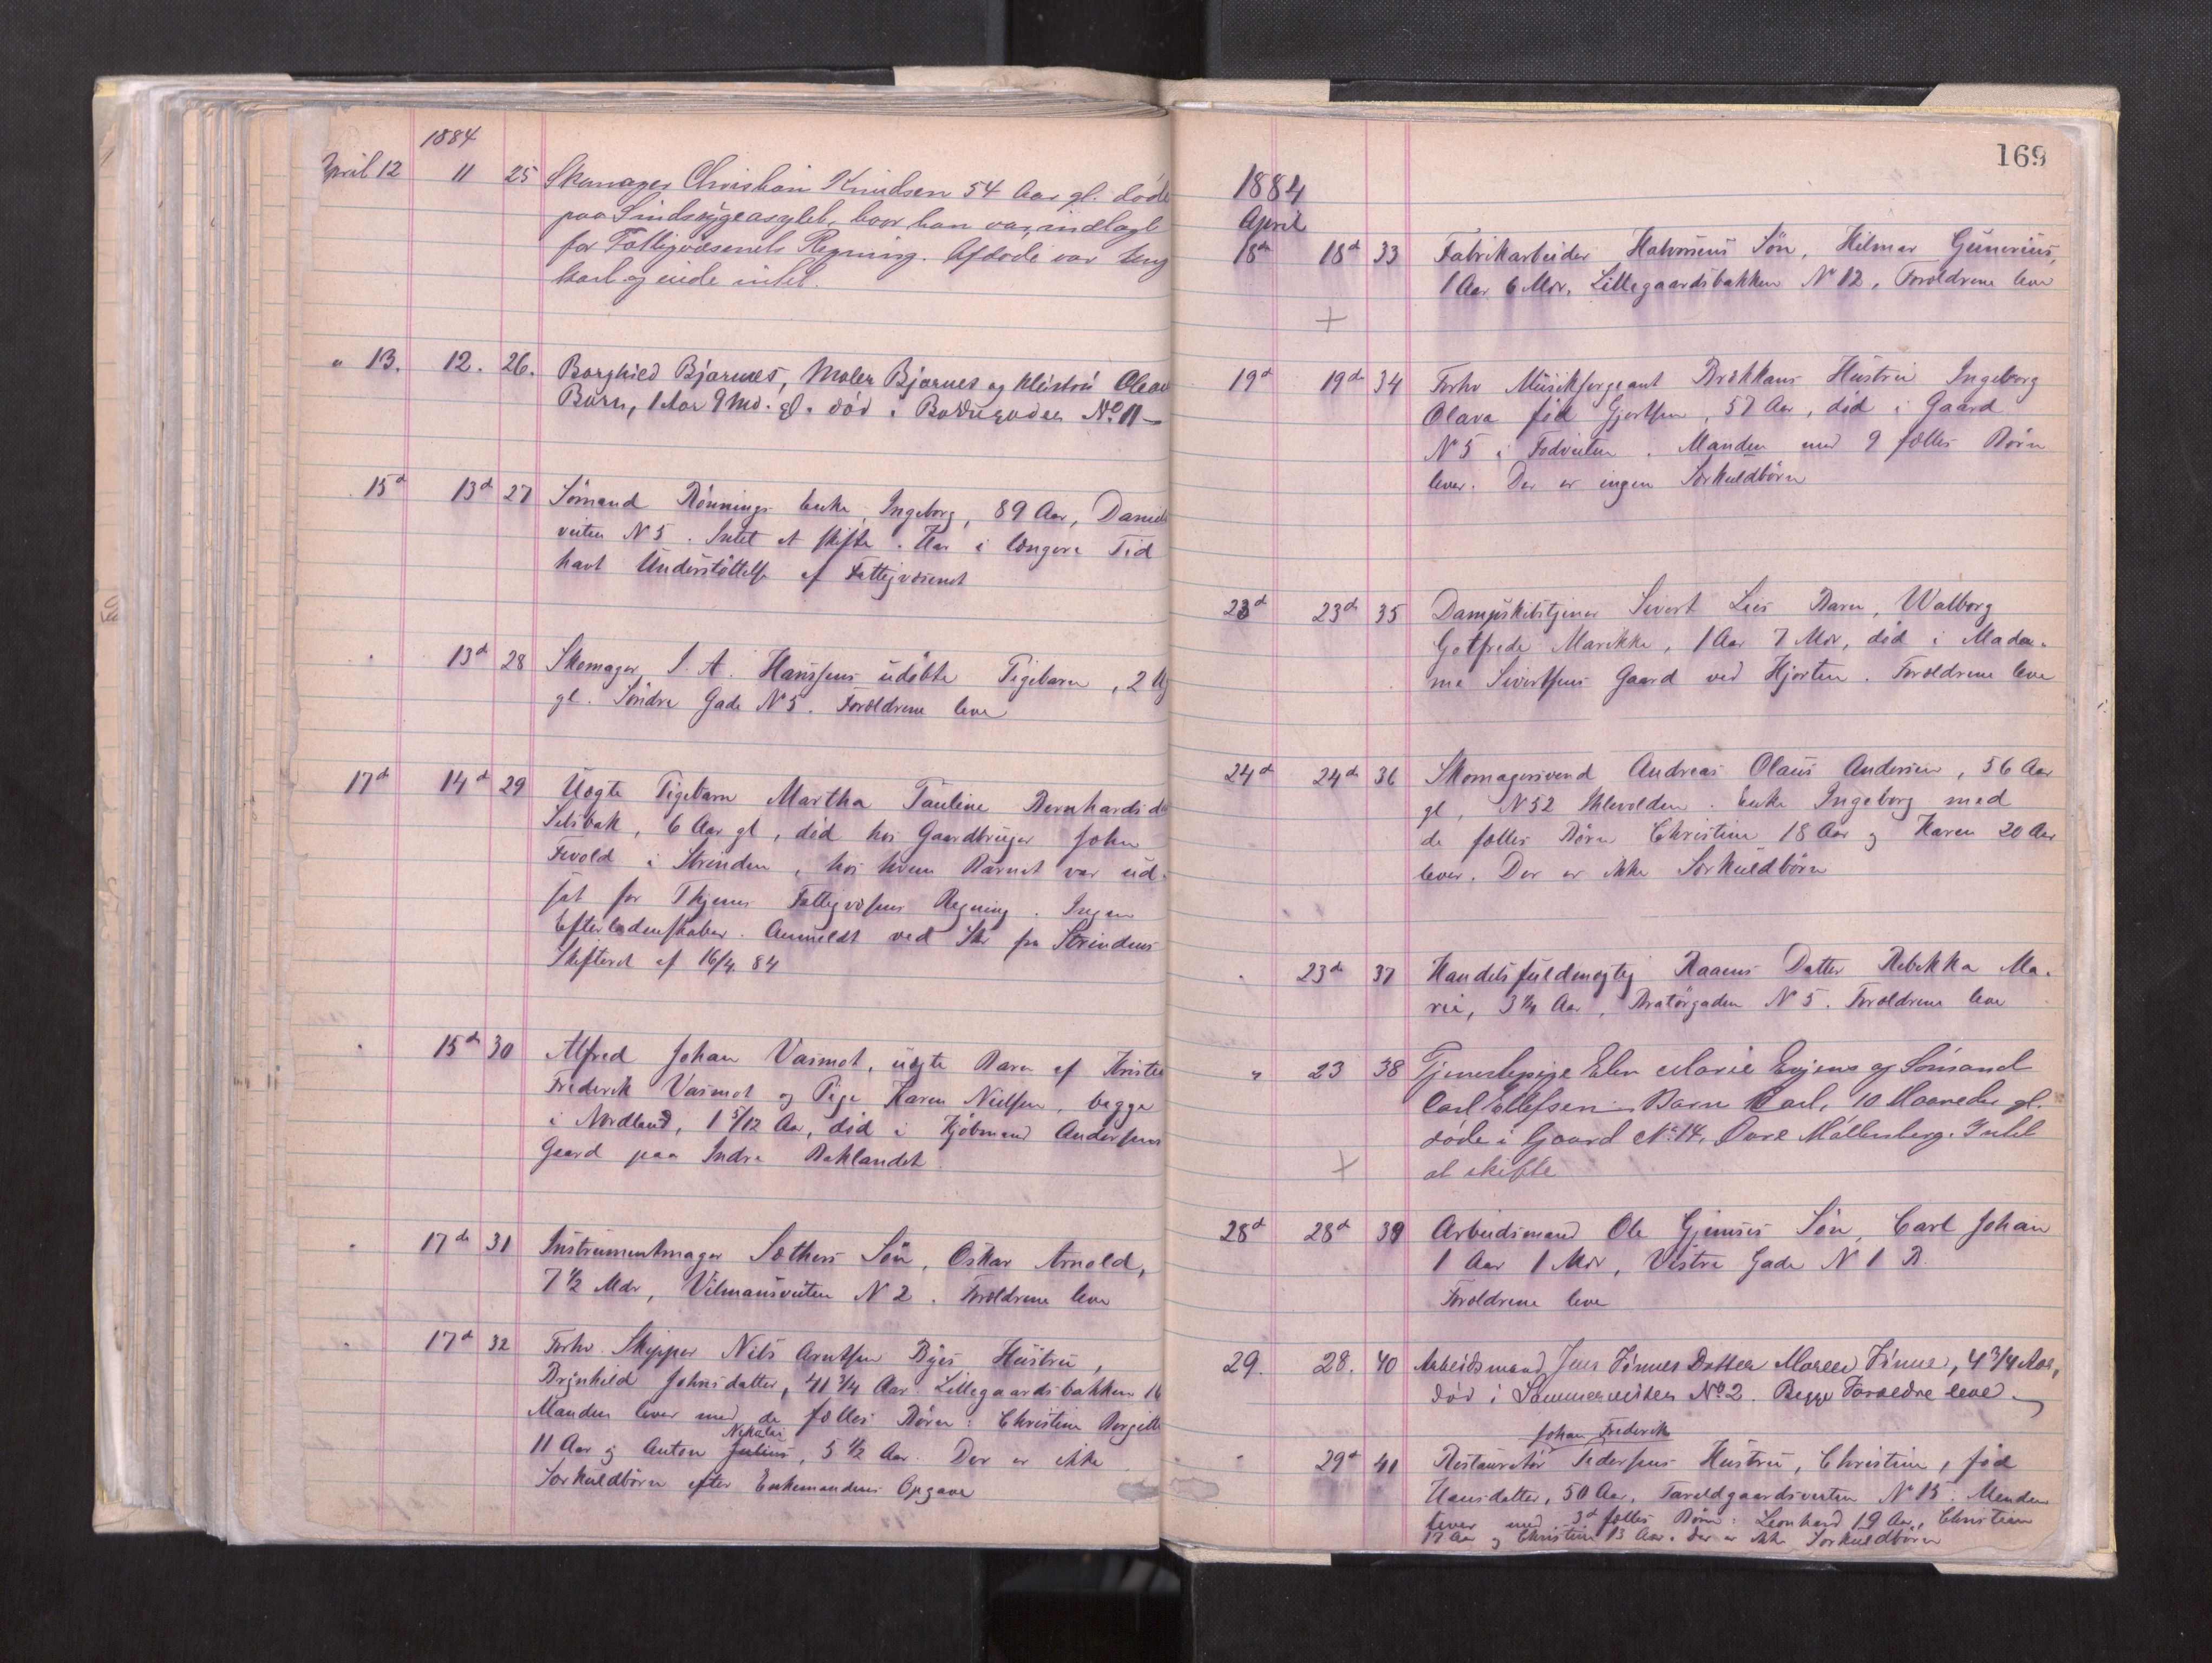 1884
April 12 11 25 Skomager Christian Knudsen 54 Aar gl. døde
paa Sindsygeasylet, hvor han var indlagt
for Fattigvæsenets Regning. Afdøde var Ung
karl og eiede intet.
" 13. 12. 26. Borghild Bjørnes, Maler Bjørnes og Hustru Oleas
Barn, 1 Aar 9 Md. gl. død i No 11
15d 13d 27 Sømand Rønnings Enke, Ingeborg, 89 Aar, Daniels
veiten N 5. Intet at skifte. Har i længere Tid
havt Understøttelse af Fattigvæsenet
13d 28 Skomager S. A. Hanssens udøbte Pigebarn, 2 Ug
gl. Søndre Gade N 5. Forældrene leve
17d 14d 29 Uægte Pigebarn Martha Pauline Bernhardsd
Selsbak, 6 Aar gl, død hos Gaardbruger John
Tvold i Strinden, hos hvem Barnet var ud-
sat for Thjems Fattigvæsens Regning. Ingen
Efterladenskaber. Anmeldt ved Skr fra Strindens
Skifteret af 16/4 84
15de 30 Alfred Johan Vasmot, uægte Barn af
Frederik Vasmot og Pige Karen Nielsen, begge
i Nordland, 1 5/12 Aar, død i Kjøbmand Andersens
Gaard paa Indre Baklandet
17de 31 Instrumentmager Sæthers Søn, Oskar Arnold,
7 1/2 Mdr, Vilmansveiten N 2. Forældrene leve
17d 32 Forhv. Skipper Nils Arntsen Byes Hustru,
Brynhild Johnsdatter, 41 3/4 Aar. Lillegaardsbakken 16
Manden lever med de fælles Børn: Christine Bergitte
Nikolai
11 Aar og Anton Julius, 5 1/2 Aar. Der er ikke
Særkuldbørn efter Enkemandens Opgave
169
1884
April
18de 18d 33 Fabrikarbeider Halvorsens Søn, Hilmar Gunerius,
1 Aar 6 Mdr. Lillegaardsbakken No 12, Forældrene leve
+
19d 19de 34 Forhv Musiksergeant Brækkans Hustru Ingeborg
Olava fød Gjertsen, 57 Aar, død i Gaard
No 5 i Fodveiten. Manden med 9 fælles Børn
lever. Der er ingen Særkuldbørn
23d 23de 35 Dampskibstjener Sivert Lies Barn, Walborg
Gotfrede Marikke, 1 Aar 7 Mdr, død i Mada-
me Sivertsens Gaard ved Hjorten. Forældrene leve
24d 24de 36 Skomagersvend Andreas Olaus Andersen, 56 Aar
gl, N 52 Ihlevolden. Enke Ingeborg med
de fælles Børn Christine 18 Aar og Karen 20 Aar
lever. Der er ikke Særkuldbørn
23de 37 Handelsfuldmægtig Raaens Datter Rebekka Ma-
rie, 3 1/4 Aar, Bratørgaden N 5. Forældrene leve
" 23 38 Tjenestepige Elen Marie Evjens og Sømand
Carl Ellefsens Barn Carl, 10 Maaneder gl.
døde i Gaard No 14, Øvre Møllenberg. Intet
at skifte
+
28d 28d 39 Arbeidsmand Ole Gjimses Søn, Carl Johan
1 Aar 1 Mdr, Vestre Gade N 1 B.
Forældrene leve
29. 28. 40 Arbeidsmand Jens Datter Maren, 4 3/4 Aar,
død i Sommerveiten No 2. Begge Forældre leve.
Johan Frederik
29d 41 Restauratør Pedersens Hustru, Christine, fød
Hansdatter, 50 Aar, Taraldgaardsveiten No 13. Manden
lever med 3d fælles Børn: Leonhard 19 Aar,
17 Aar og Christine 13 Aar. Der er ikke Særkuldbørn